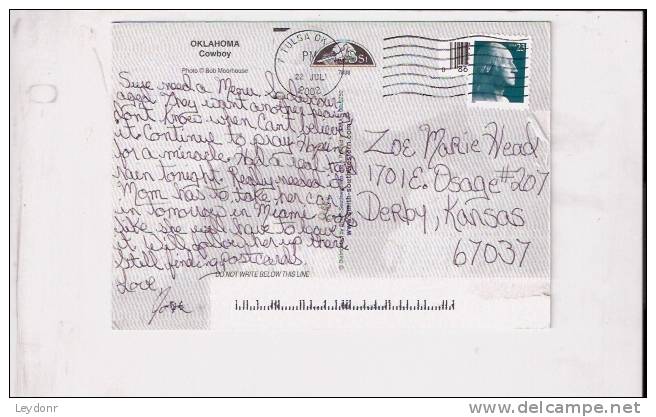 OKLAHOMA
Cowboy
Photo © Bob Moorhouse
TULSA OK
PM
22 JUL
2002
23
Sure need a
ago. They want another
Don't know when. Can't believe
it. Continue to pray. Hoping
for a miracle. Had a real
rain tonight. Really needed it.
Mom has to take her car
in tomorrow in Miami. Looks
like she will have to leave
it. Will follow her up there
Still finding postcards.
Love,
Zoe Marie Head
1701 E. Osage #207
Derby, Kansas
67037
DO NOT WRITE BELOW THIS LINE
Leydonr
delcampe.net